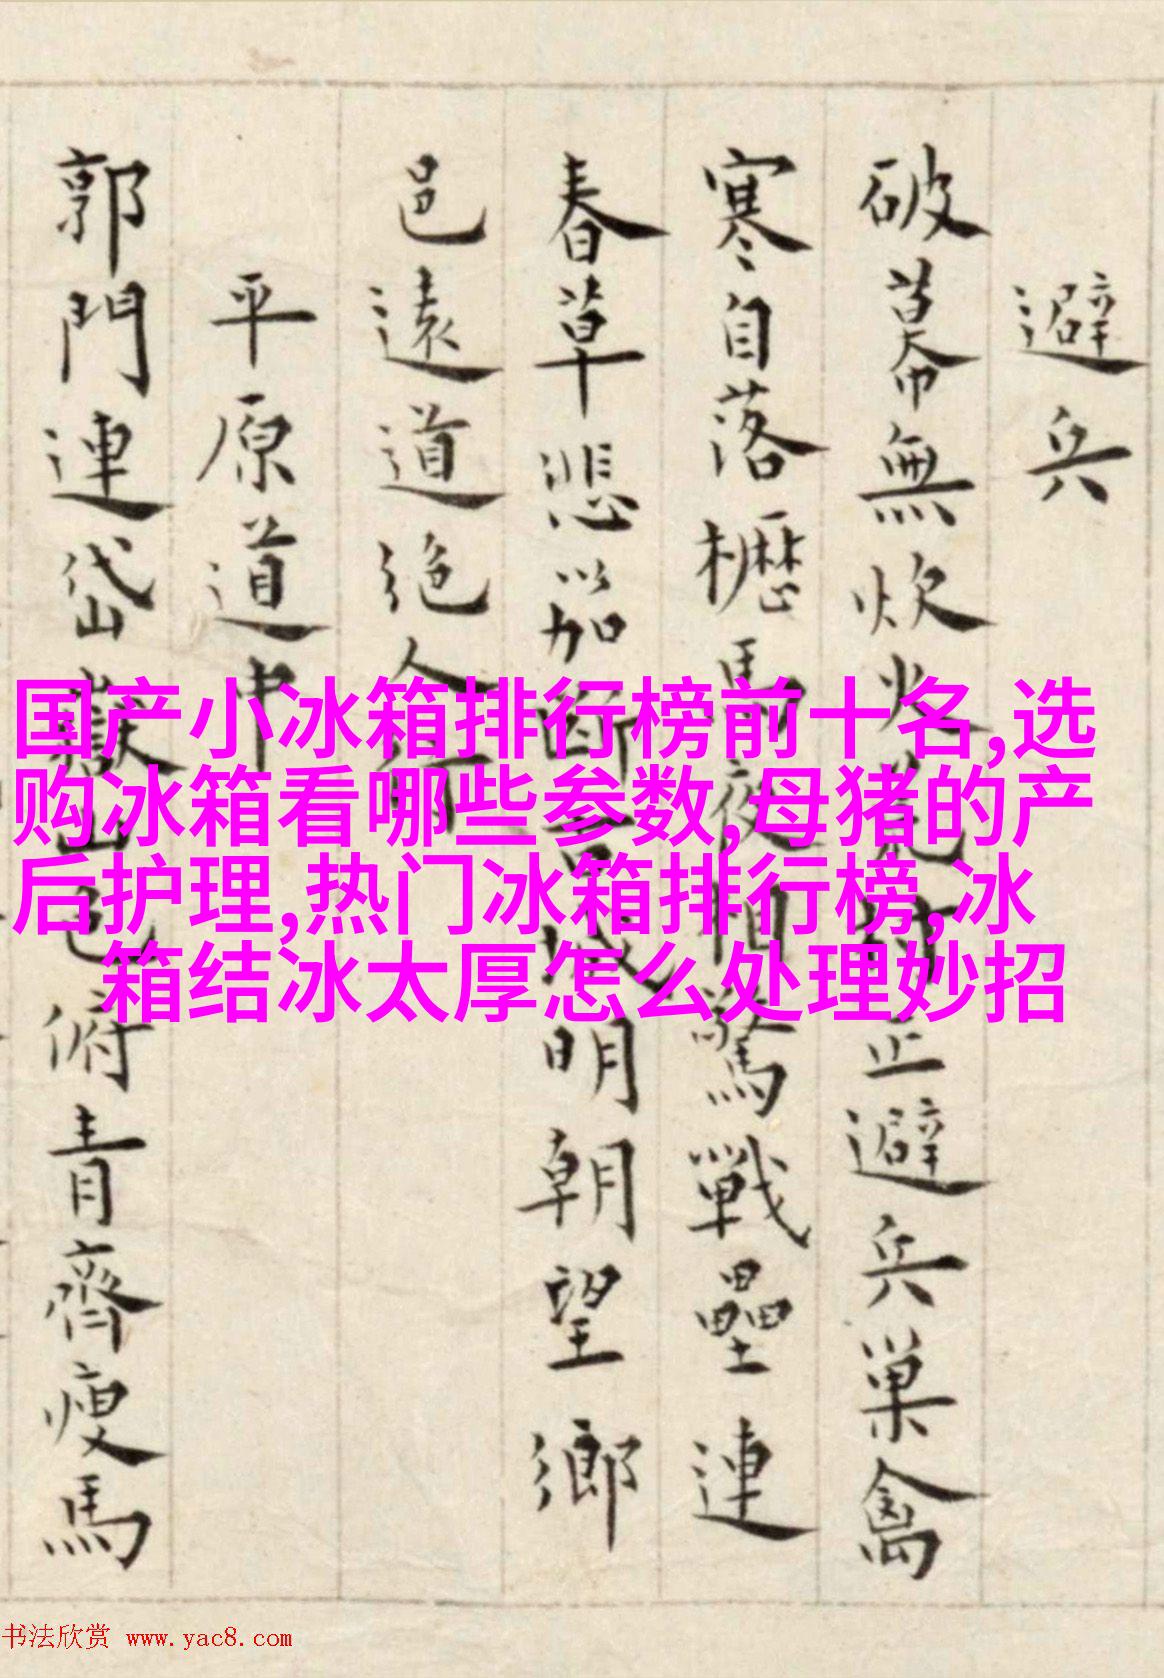 避兵
破幕無炊火荒村正避兵巢禽
寒自落櫪馬夜相驚戰壘連
春草悲笳斷古城明朝望鄉
邑遠道絶人行
平原道中
郭門連岱嶽山色俯青齊瘦馬
国产小冰箱排行榜前十名,选
购冰箱看哪些参数,母猪的产
后护理,热门冰箱排行榜,冰
箱结冰太厚怎么处理妙招
书法欣赏 www.yac8.com